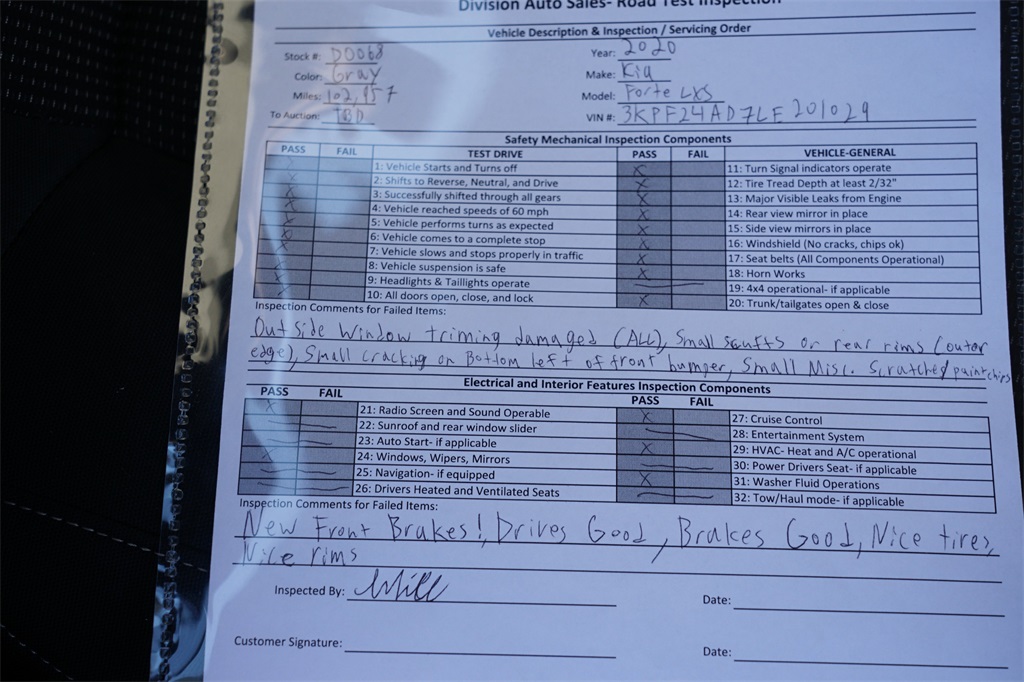 Division Auto Sales- Road Test Inspection
Vehicle Description & Inspection / Servicing Order
Stock #: D0068 Year: 2020
Color: Gray Make: Kia
Miles: 102,957 Model: Forte LXS
To Auction: TBD VIN #: 3KPF24AD7LE201029
Safety Mechanical Inspection Components
PASS FAIL TEST DRIVE PASS FAIL VEHICLE-GENERAL
1: Vehicle Starts and Turns off X 11: Turn Signal indicators operate
X 2: Shifts to Reverse, Neutral, and Drive X 12: Tire Tread Depth at least 2/32"
X 3: Successfully shifted through all gears X 13: Major Visible Leaks from Engine
X 4: Vehicle reached speeds of 60 mph X 14: Rear view mirror in place
X 5: Vehicle performs turns as expected X 15: Side view mirrors in place
X 6: Vehicle comes to a complete stop X 16: Windshield (No cracks, chips ok)
X 7: Vehicle slows and stops properly in traffic X 17: Seat belts (All Components Operational)
X 8: Vehicle suspension is safe X 18: Horn Works
X 9: Headlights & Taillights operate 19: 4x4 operational- if applicable
X 10: All doors open, close, and lock X 20: Trunk/tailgates open & close
Inspection Comments for Failed Items:
Outside Window triming damaged (ALL), Small scuffs or rear rims (outor
edge), Small cracking on Bottom left of front bumper, Small Misc. Scratches/paintchips
Electrical and Interior Features Inspection Components
PASS FAIL PASS FAIL
X 21: Radio Screen and Sound Operable X 27: Cruise Control
22: Sunroof and rear window slider 28: Entertainment System
23: Auto Start- if applicable X 29: HVAC- Heat and A/C operational
X 24: Windows, Wipers, Mirrors 30: Power Drivers Seat- if applicable
25: Navigation- if equipped X 31: Washer Fluid Operations
26: Drivers Heated and Ventilated Seats 32: Tow/Haul mode- if applicable
Inspection Comments for Failed Items:
New Front Brakes!, Drives Good, Brakes Good, Nice tires,
Nice rims
Inspected By: Will Date:
Customer Signature: Date: